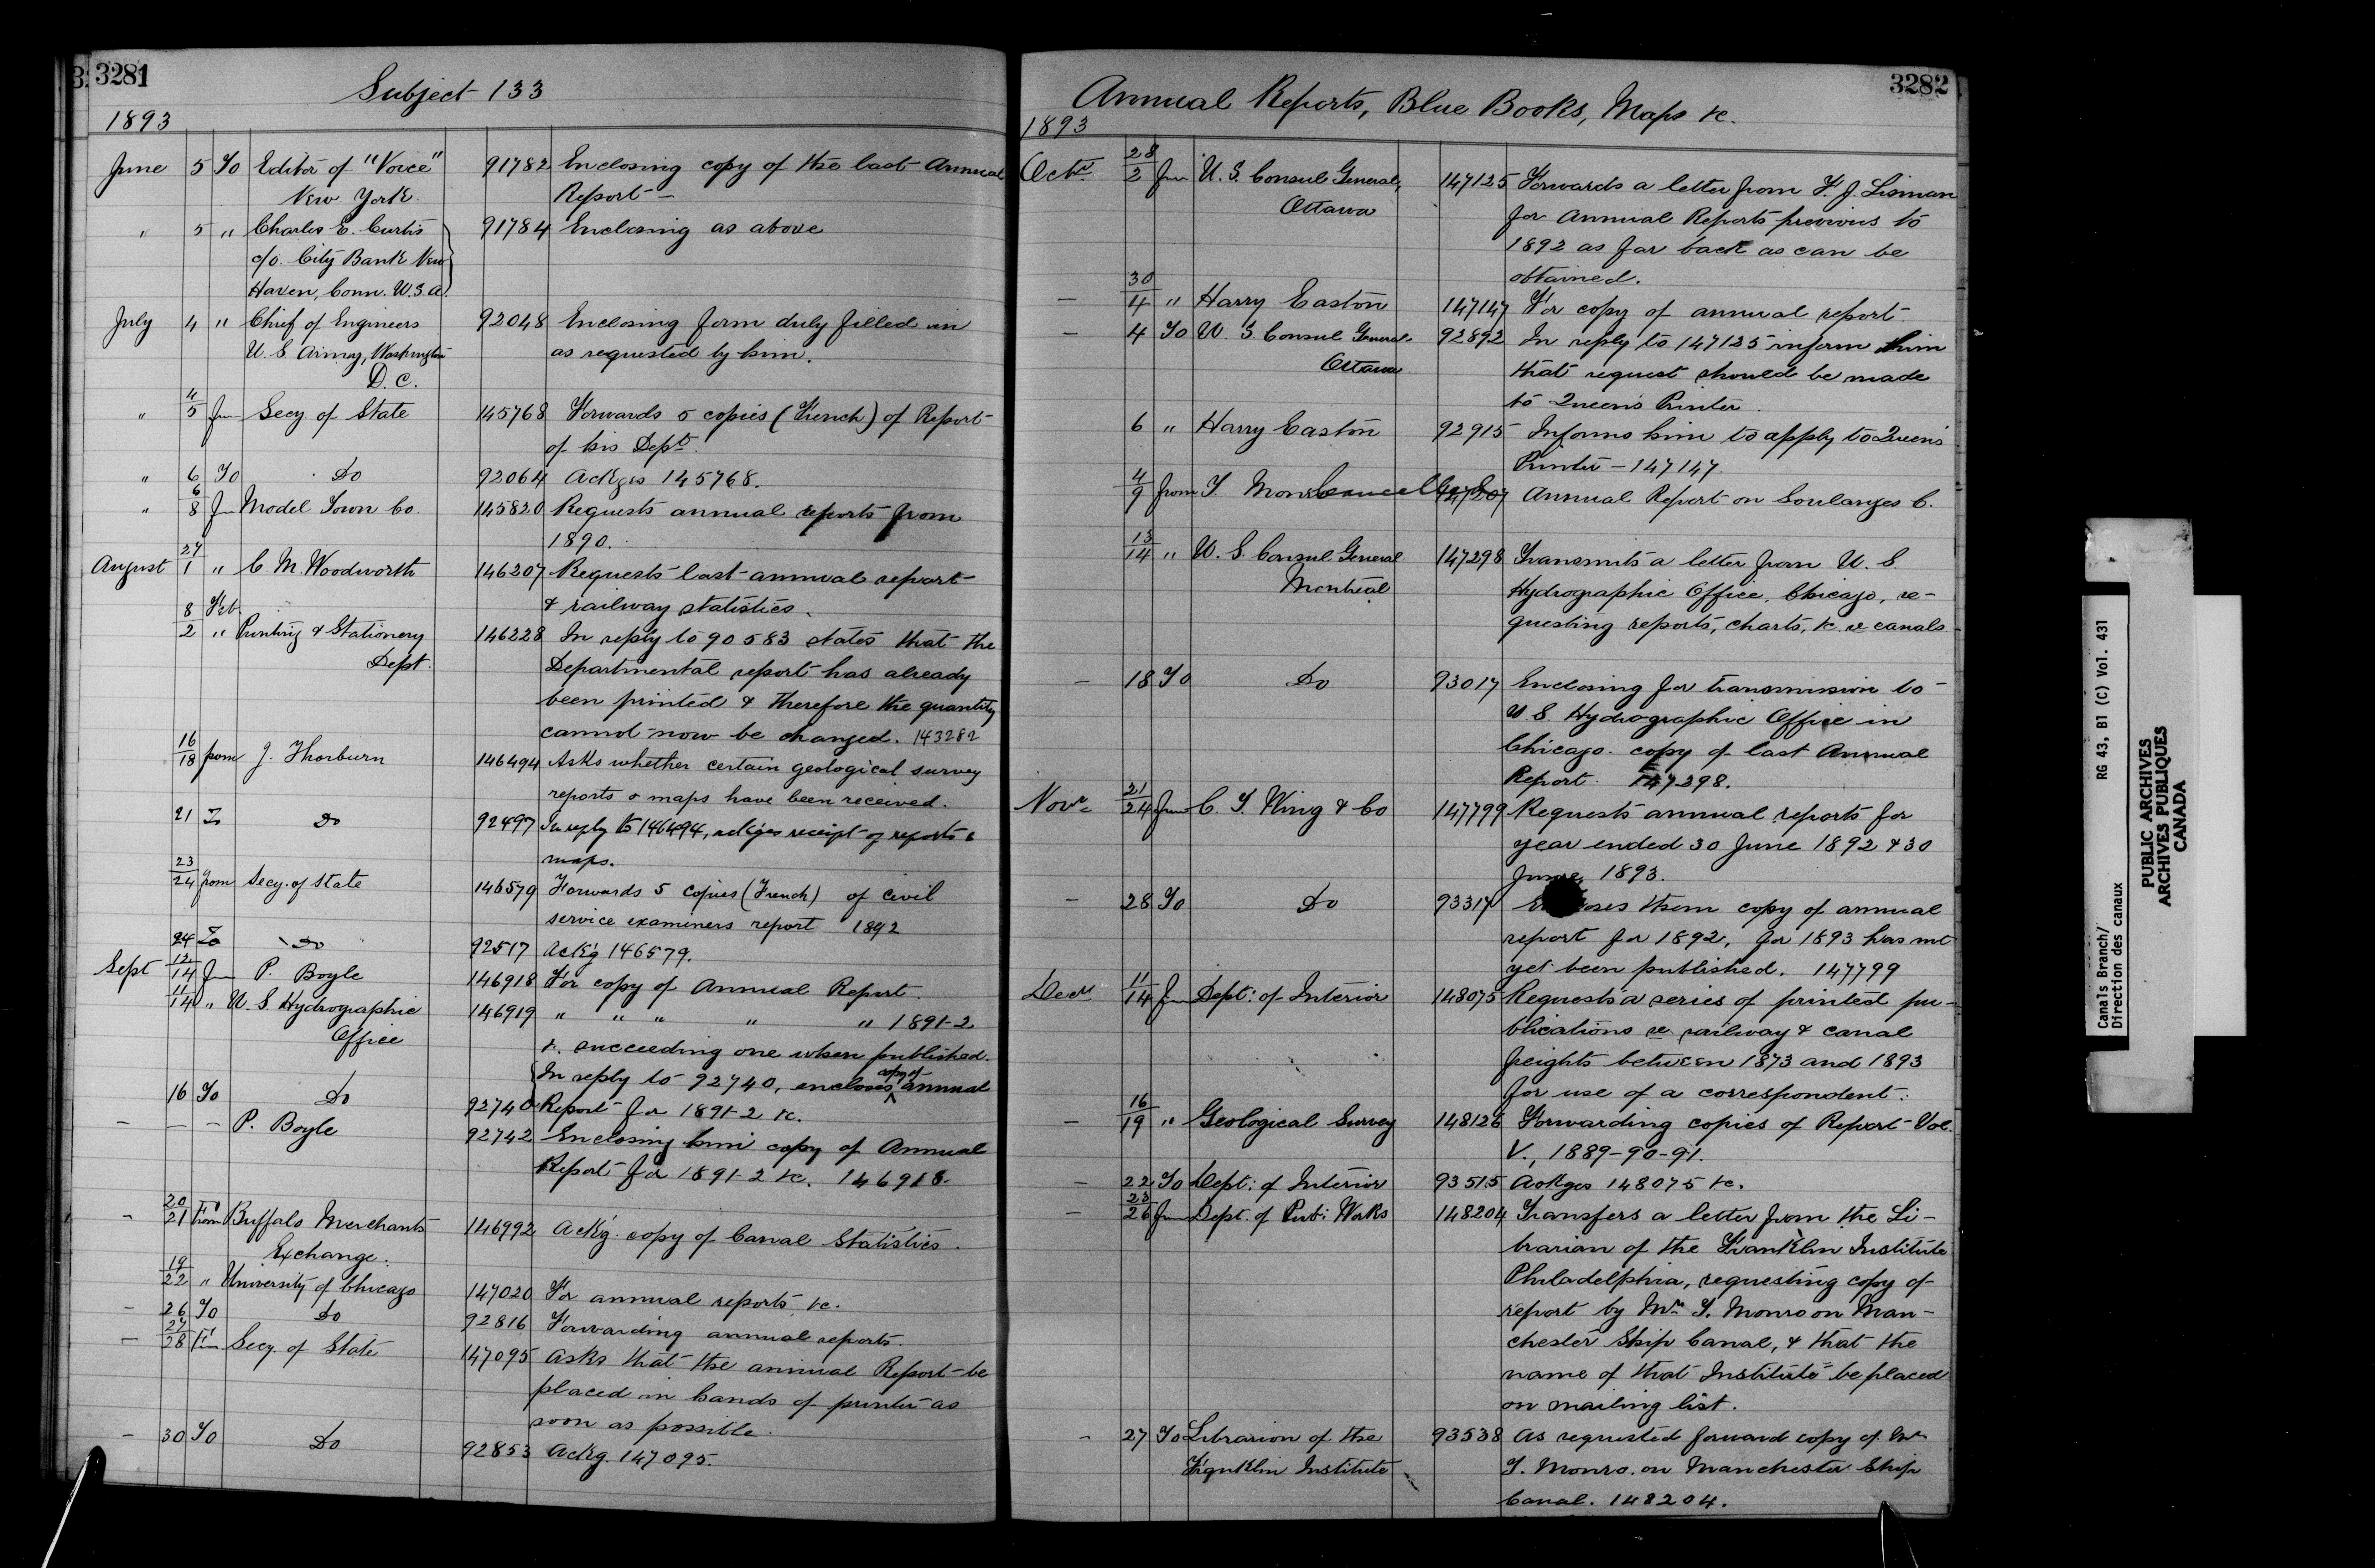 3281
Subject 133
1893
June 5 To Editor of "Voice" 91782 Enclosing copy of the last Annual
New York. Report —
" 5 " Charles E. Curtis 91784 Enclosing as above
c/o. City Bank New
Haven, Conn. U.S.A.
July 4 " Chief of Engineers 92048 Enclosing form duly filled in
U.S. Army, Washington as requested by him.
D.C.
" 4/5 fm Secy. of State 145768 Forwards 5 copies (French) of Report
of his Dept.
" 6 To Do 92064 Ackges 145768.
" 6/8 fm Model Town Co. 145820 Requests annual reports from
1890.
August 27/1 " C. M. Woodworth 146207 Requests last annual report
& railway statistics.
8 Feb.
2 " Printing & Stationery 146228 In reply to 90583 states that the
Dept. Departmental report has already
been printed & therefore the quantity
cannot now be changed. 143282
16/18 from J. Thorburn 146494 Asks whether certain geological survey
reports & maps have been received.
21 To Do 92497 In reply to 146494, ackges receipt of reports &
maps.
23/24 from Secy. of State 146579 Forwards 5 copies (French) of civil
service examiners report 1892
24 To Do 92517 Ack'g 146579.
Sept 12/14 fm P. Boyle 146918 For copy of Annual Report.
11/14 " U.S. Hydrographic 146919 " " " " " 1891-2
Office &. succeeding one when published.
In reply to 92740, encloses copy of annual
16 To Do 92740 Report for 1891-2 &c.
— — — P. Boyle 92742 Enclosing him copy of Annual
Report for 1891-2 &c. 146918.
— 20/21 From Buffalo Merchants 146992 Ack'g. copy of Canal Statistics.
Exchange.
19/22 " University of Chicago 147020 For annual reports &c.
— 26 To Do 92816 Forwarding annual reports.
— 27/28 Fm Secy. of State 147095 Asks that the annual Report be
placed in hands of printer as
soon as possible.
— 30 To Do 92853 Ackg. 147095.
3282
Annual Reports, Blue Books, Maps &c.
1893
Octr. 28/2 fm U.S. Consul General, 147125 Forwards a letter from F. J. Lisman
Ottawa for Annual Reports previous to
1892 as far back as can be
obtained.
— 30/4 " Harry Easton 147147 For copy of annual report
— 4 To U.S. Consul General 92892 In reply to 147125 inform him
Ottawa that request should be made
to Queen's Printer.
6 " Harry Easton 92915 Informs him to apply to Queen's
Printer — 147147.
4/9 from T. Monro Cancelled 147207 Annual Report on Soulanges C.
13/14 " U.S. Consul General 147298 Transmits a letter from U.S.
Montreal Hydrographic Office, Chicago, re-
questing reports, charts, &c. re canals
— 18 To Do 93017 Enclosing for transmission to
U.S. Hydrographic Office in
Chicago. copy of last Annual
Report. 147298.
Novr. 21/24 fm C. T. Wing & Co 147799 Requests annual reports for
year ended 30 June 1892 & 30
June, 1893.
— 28 To Do 93317 Encloses them copy of annual
report for 1892, for 1893 has not
yet been published. 147799
Decr. 11/14 fm Dept: of Interior 148075 Requests a series of printed pu-
blications re railway & canal
freights between 1873 and 1893
for use of a correspondent.
— 16/19 " Geological Survey 148126 Forwarding copies of Report Vol.
V., 1889-90-91.
— 22 To Dept: of Interior 93515 Ackges 148075 &c.
— 23/26 fm Dept. of Pub: Works 148204 Transfers a letter from the Li-
brarian of the Franklin Institute
Philadelphia, requesting copy of
report by Mr. T. Monro on Man-
chester Ship Canal, & that the
name of that Institute be placed
on mailing list.
— 27 To Librarian of the 93538 As requested forward copy of Mr.
Franklin Institute T. Monro, on Manchester Ship
Canal. 148204.
Canals Branch/ RG 43, B1 (C) Vol. 431
Direction des canaux
PUBLIC ARCHIVES
ARCHIVES PUBLIQUES
CANADA